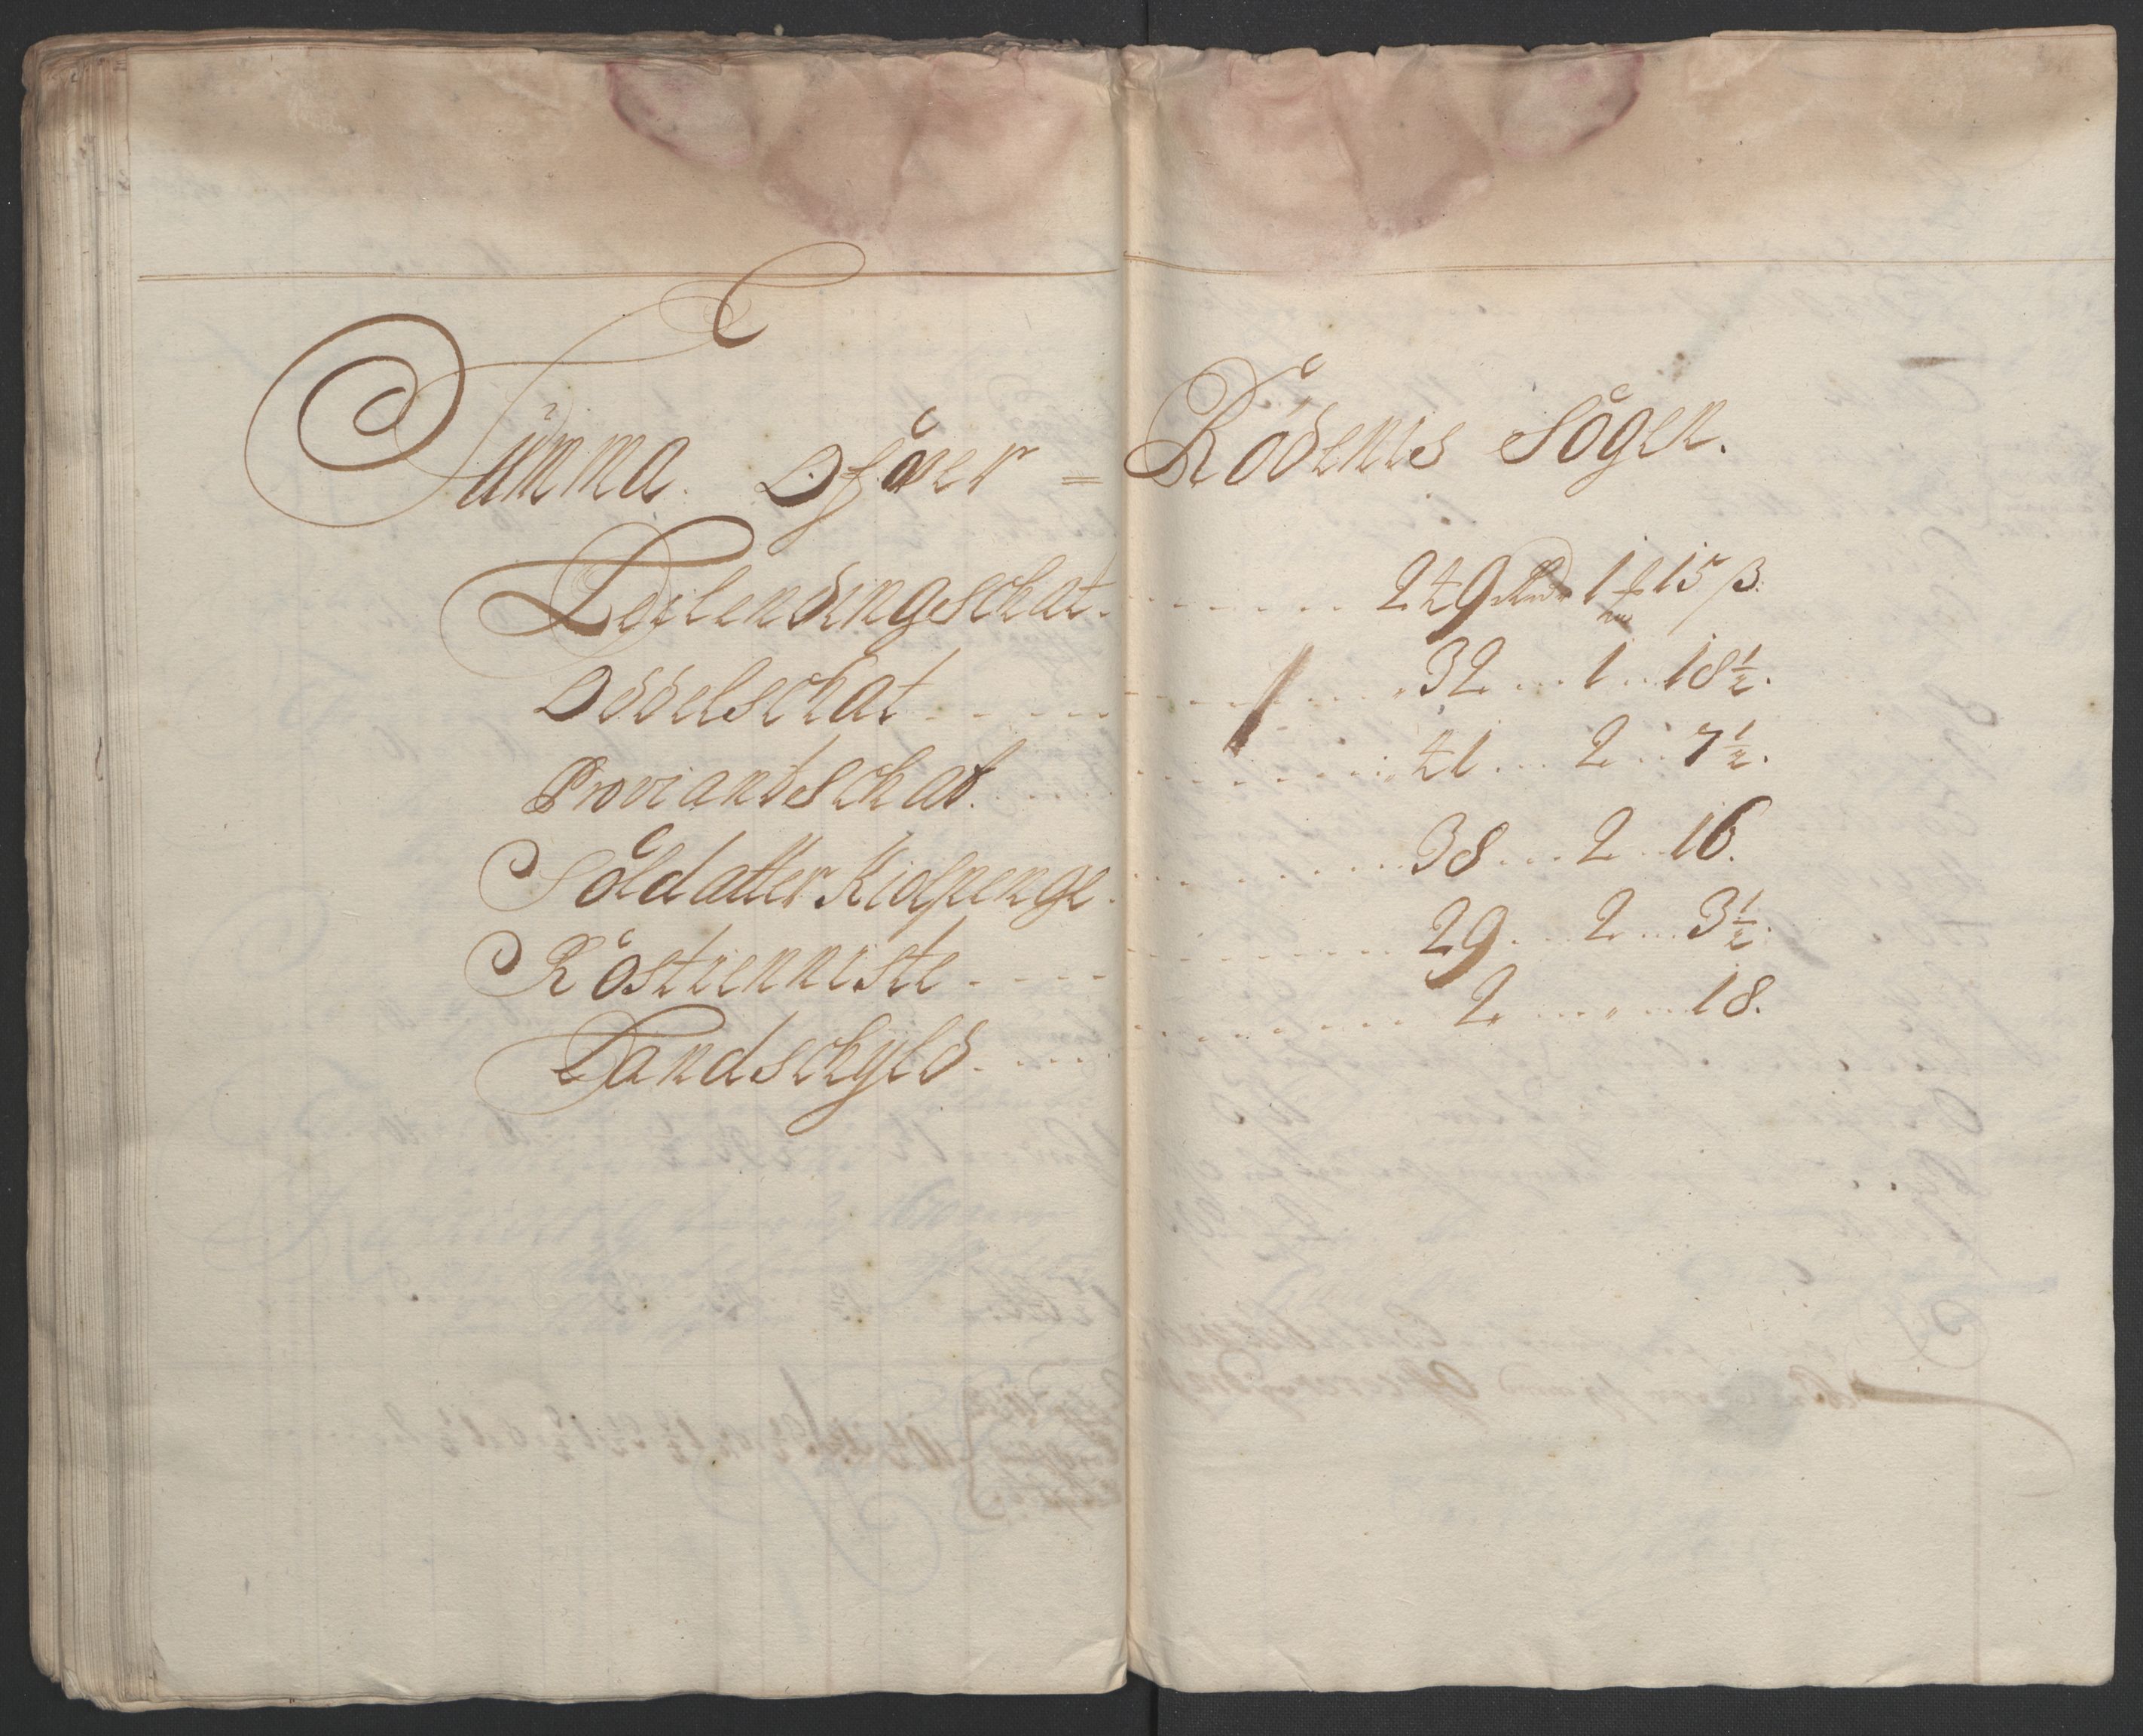 Summa Ofver = Rödenes Sögen.
Leilendingschat. 249 Rdr 1 15 β.
Oddelschat 32 . . . 1 . . 18½.
Proviandtschat. 41 . . . 2 . . 7½.
Soldatter Kiolpenge. 38 . . . 2 . . 16.
Rostienniste 29 . . . 2 . . . 3½.
Landschyld 2 . . . „ . . . 18.